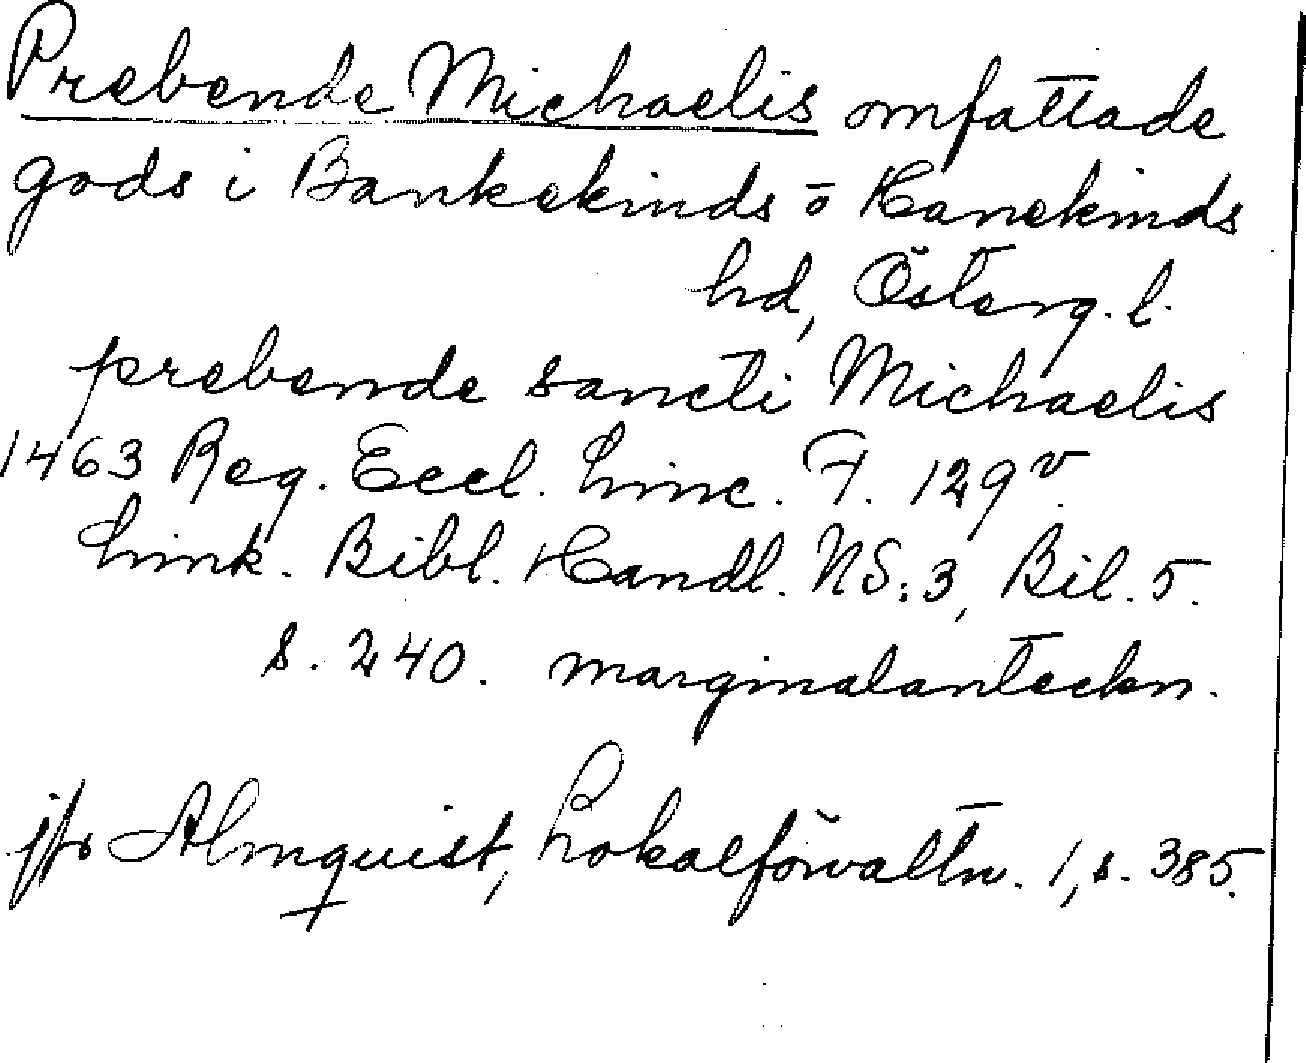 Prebende Michaelis omfattade
gods i Bankekinds o Hanekinds
hd, Österg. l.
prebende sancti Michaelis
1463 Reg. Eccl. Linc. F. 129v.
Link. Bibl. Handl. NS:3, Bil. 5.
s. 240. marginalanteckn.
jfr Almquist, Lokalförvaltn. 1, s. 385.